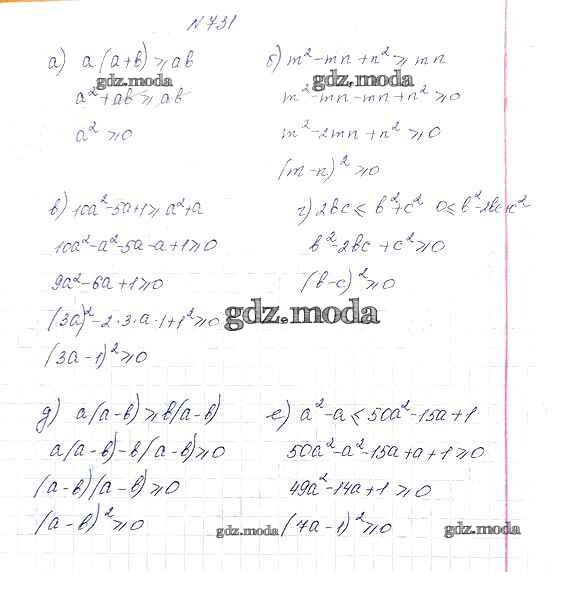 N 731
а) a(a+b) ≥ ab
a² + ab ≥ ab
a² ≥ 0
б) m² - mn + n² ≥ mn
m² - mn - mn + n² ≥ 0
m² - 2mn + n² ≥ 0
(m - n)² ≥ 0
gdz.moda
gdz.moda
в) 10a² - 5a + 1 ≥ a² + a
10a² - a² - 5a - a + 1 ≥ 0
9a² - 6a + 1 ≥ 0
(3a)² - 2·3·a·1 + 1² ≥ 0
(3a - 1)² ≥ 0
г) 2bc ≤ b² + c² 0 ≤ b² - 2bc + c²
b² - 2bc + c² ≥ 0
(b - c)² ≥ 0
gdz.moda
д) a(a - b) ≥ b(a - b)
a(a - b) - b(a - b) ≥ 0
(a - b)(a - b) ≥ 0
(a - b)² ≥ 0
е) a² - a ≤ 50a² - 15a + 1
50a² - a² - 15a + a + 1 ≥ 0
49a² - 14a + 1 ≥ 0
(7a - 1)² ≥ 0
gdz.moda
gdz.moda